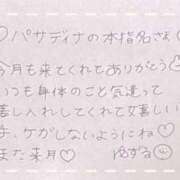 ♡パサディナの本指名さま
今月も来てくれてありがとう
いつも身体のこと気遣って
差し入れしてくれて嬉しい
ケガしないようにね♡
また来月♡ ゆずる